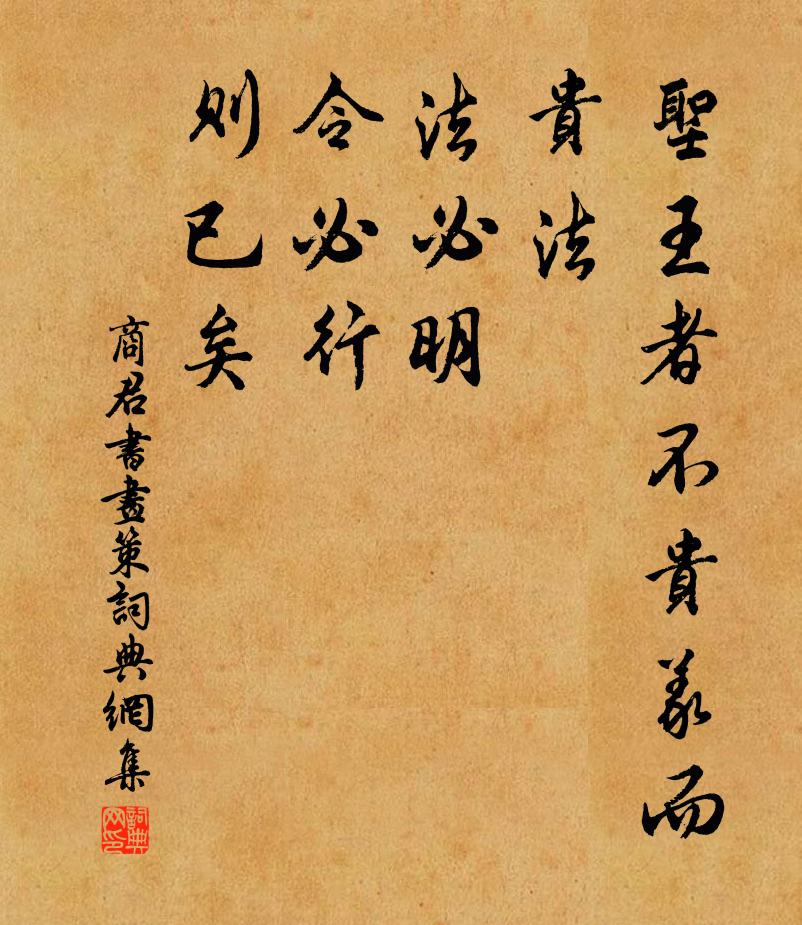 聖王者不貴義而
貴法
法必明
令必行
則已矣
商君書畫策詞典網集
詞典网印